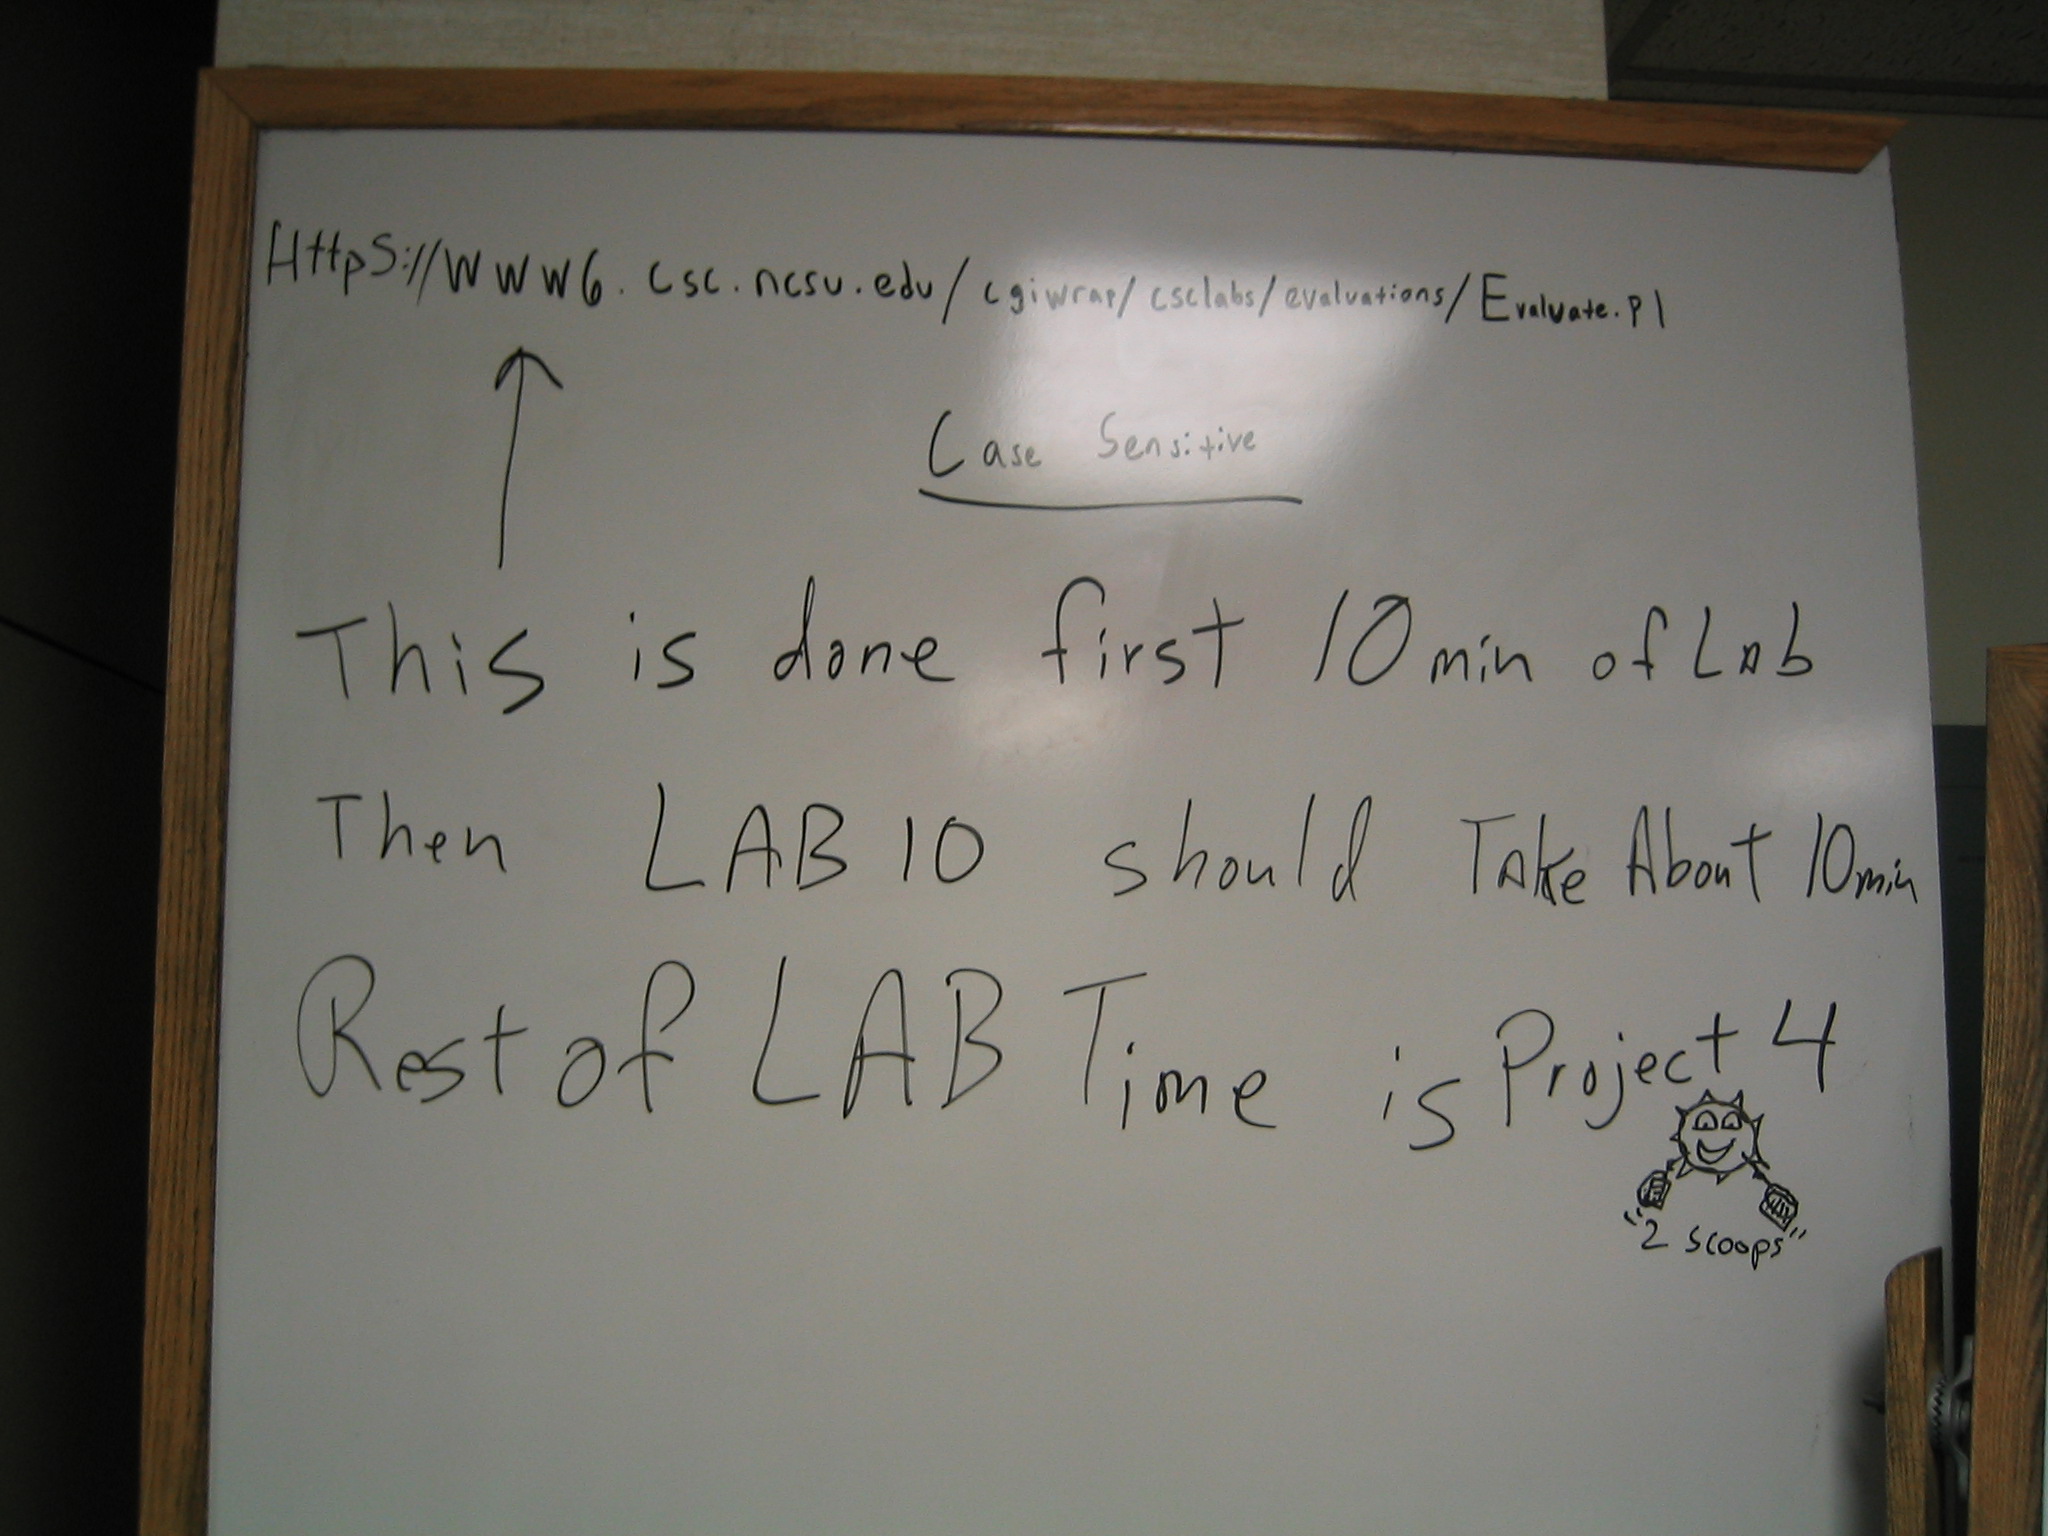 HttpS://WWW6.csc.ncsu.edu/cgiwrap/csclabs/evaluations/Evaluate.pl
Case Sensitive
This is done first 10 min of LAb
Then LAB 10 should TAke About 10 min
Rest of LAB Time is Project 4
"2 scoops"